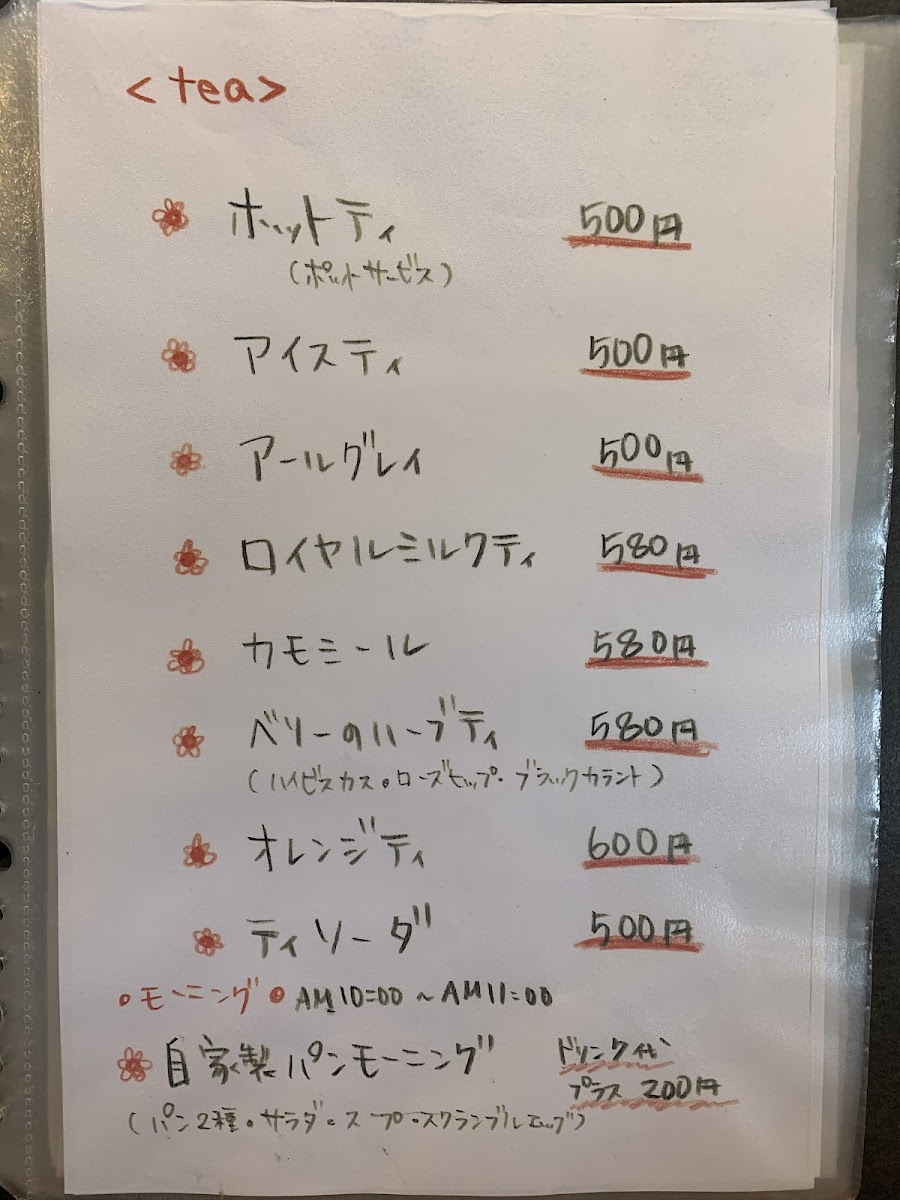 <tea>
ホットティ 500円
(ポットサービス)
アイスティ 500円
アールグレイ 500円
ロイヤルミルクティ 580円
カモミール 580円
ベリーのハーブティ 580円
(ハイビスカス・ローズヒップ・ブラックカラント)
オレンジティ 600円
ティソーダ 500円
モーニング AM10:00 ~ AM11:00
自家製パンモーニング ドリンク代
プラス 200円
(パン2種・サラダ・スープ・スクランブルエッグ)